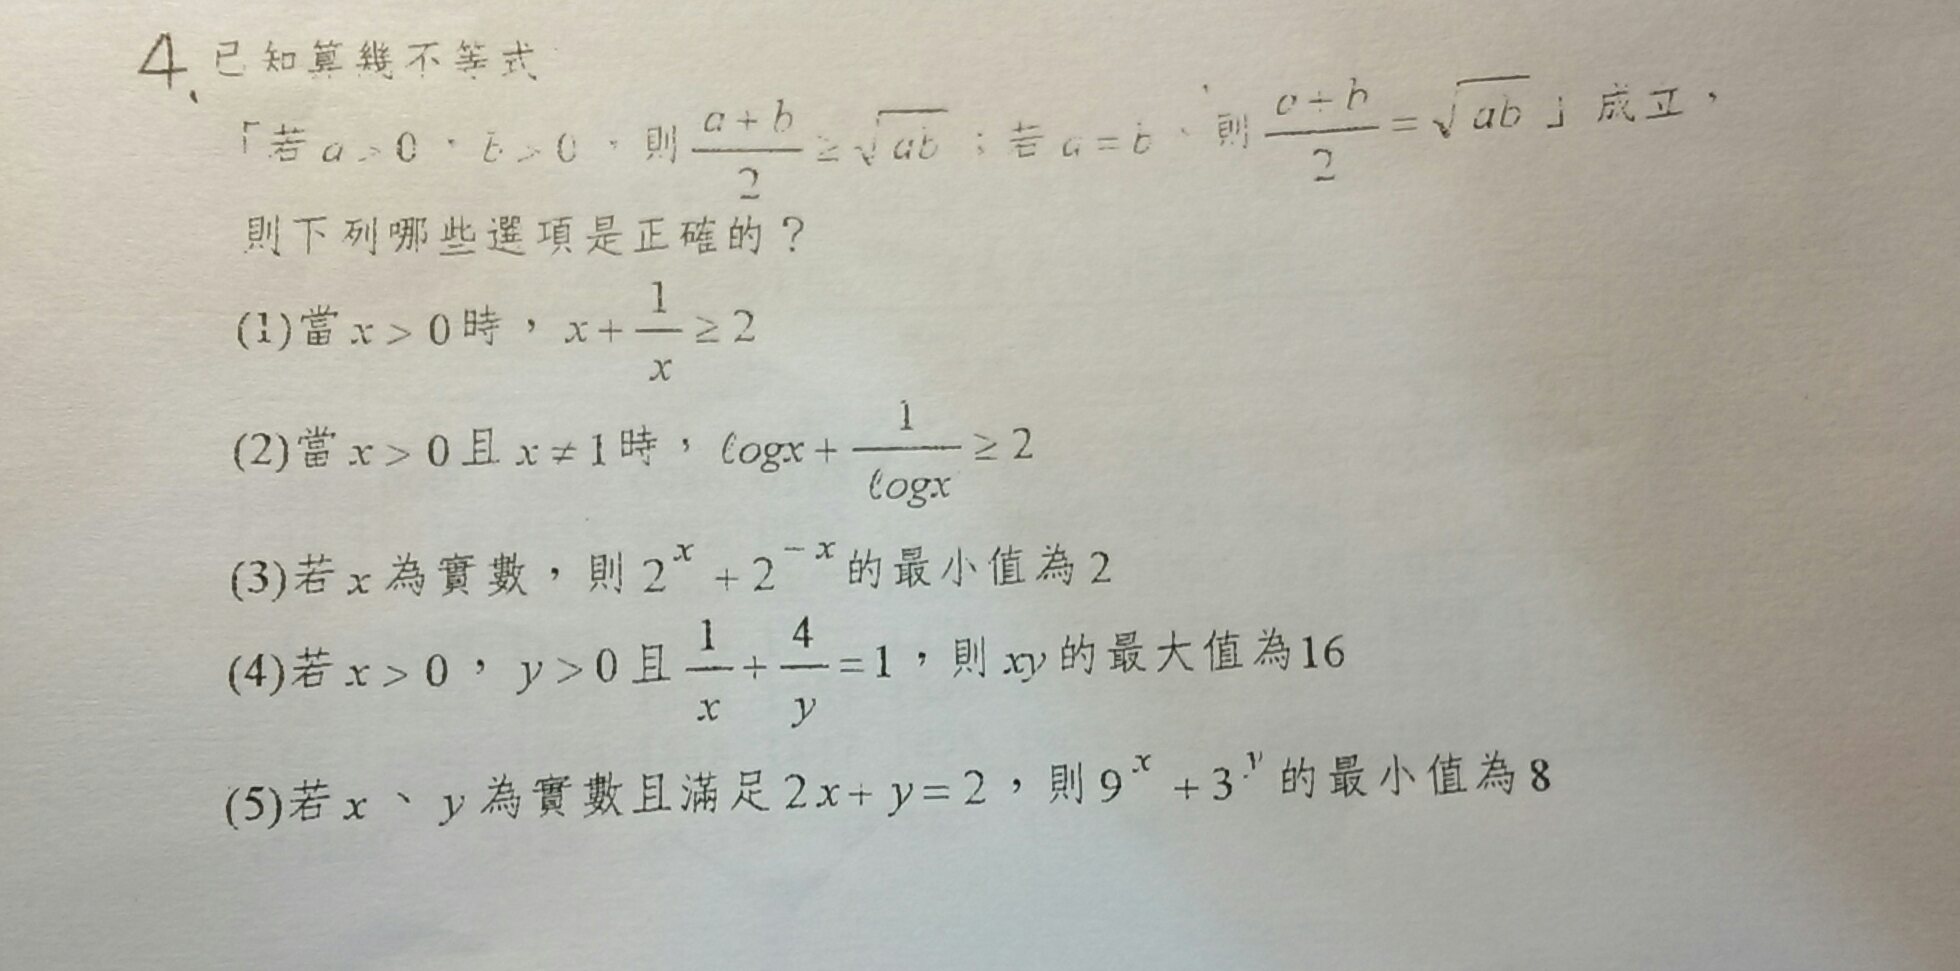 4、已知算幾不等式
「若a>0，b>0，則 (a+b)/2 ≥ √(ab)；若a=b、則 (a+b)/2 = √(ab)」成立，
則下列哪些選項是正確的？
(1)當x>0時，x+1/x≥2
(2)當x>0且x≠1時，ℓogx+1/ℓogx≥2
(3)若x為實數，則2^x+2^(-x)的最小值為2
(4)若x>0，y>0且1/x+4/y=1，則xy的最大值為16
(5)若x、y為實數且滿足2x+y=2，則9^x+3^y的最小值為8